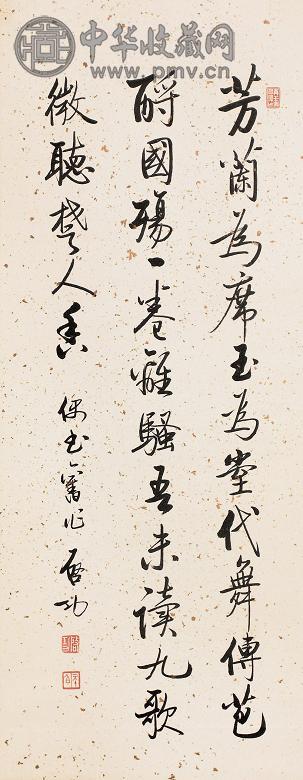 中华收藏网
www.pmv.cn
芳蘭為席玉為堂代舞傳芭
酹國殤一卷離騷吾未讀九歌
微聽楚人香 偶書舊作 启功